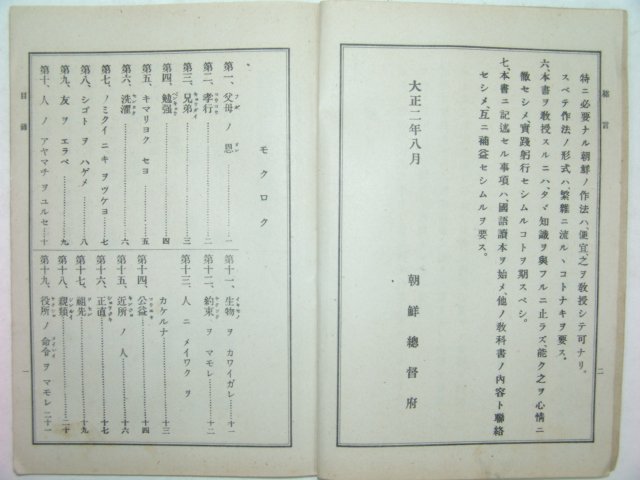 緒言
二
特ニ必要ナル朝鮮ノ作法ハ、便宜之ヲ教授シテ可ナリ。
スベテ作法ノ形式ハ、繁雜ニ流ルヽコトナキヲ要ス。
六、本書ヲ教授スルニハ、タヾ知識ヲ與フルニ止ラズ、能ク之ヲ心情ニ
徹セシメ、實踐躬行セシムルコトヲ期スベシ。
七、本書ニ記述セル事項ハ、國語讀本ヲ始メ、他ノ教科書ノ內容ト聯絡
セシメ、互ニ補益セシムルヲ要ス。
大正二年八月
朝鮮總督府
モクロク
第一、父母ノ恩……一
第二、孝行……二
第三、兄弟……三
第四、勉强……四
第五、キマリヨクセヨ……五
第六、洗濯……六
第七、ノミクイニキヲツケヨ……七
第八、シゴトヲハゲメ……八
第九、友ヲエラベ……九
第十、人ノアヤマチヲユルセ……十
第十一、生物ヲカワイガレ……十一
第十二、約束ヲマモレ……十二
第十三、人ニメイワクヲ
カケルナ……十三
第十四、公益……十四
第十五、近所ノ人……十六
第十六、正直……十七
第十七、祖先……十九
第十八、親類……二十
第十九、役所ノ命令ヲマモレ……二十一
目錄
一